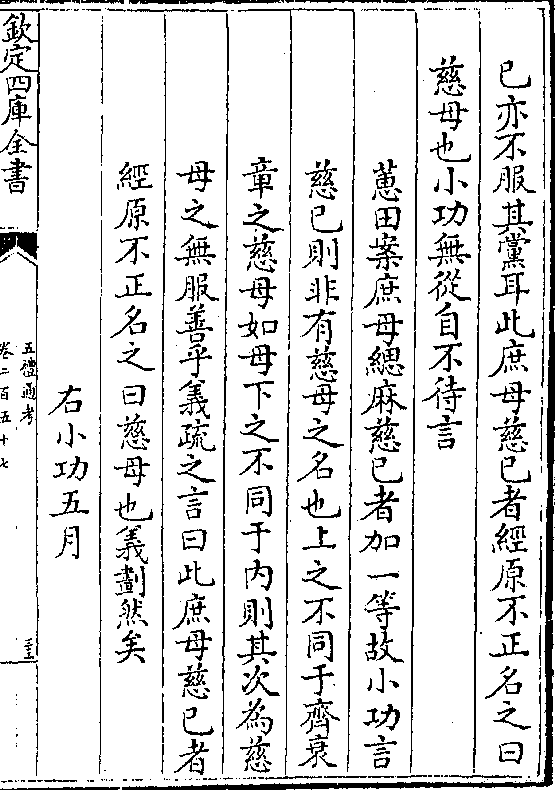 己亦不服其黨耳此庶母慈己者經原不正名之曰
慈母也小功無從自不待言
蕙田案庶母緦麻慈己者加一等故小功言
慈己則非有慈母之名也上之不同于齊衰
章之慈母如母下之不同于內則其次為慈
母之無服善乎義疏之言曰此庶母慈己者
經原不正名之曰慈母也義劃然矣
右小功五月
欽定四庫全書
五禮通考
卷二百五十七